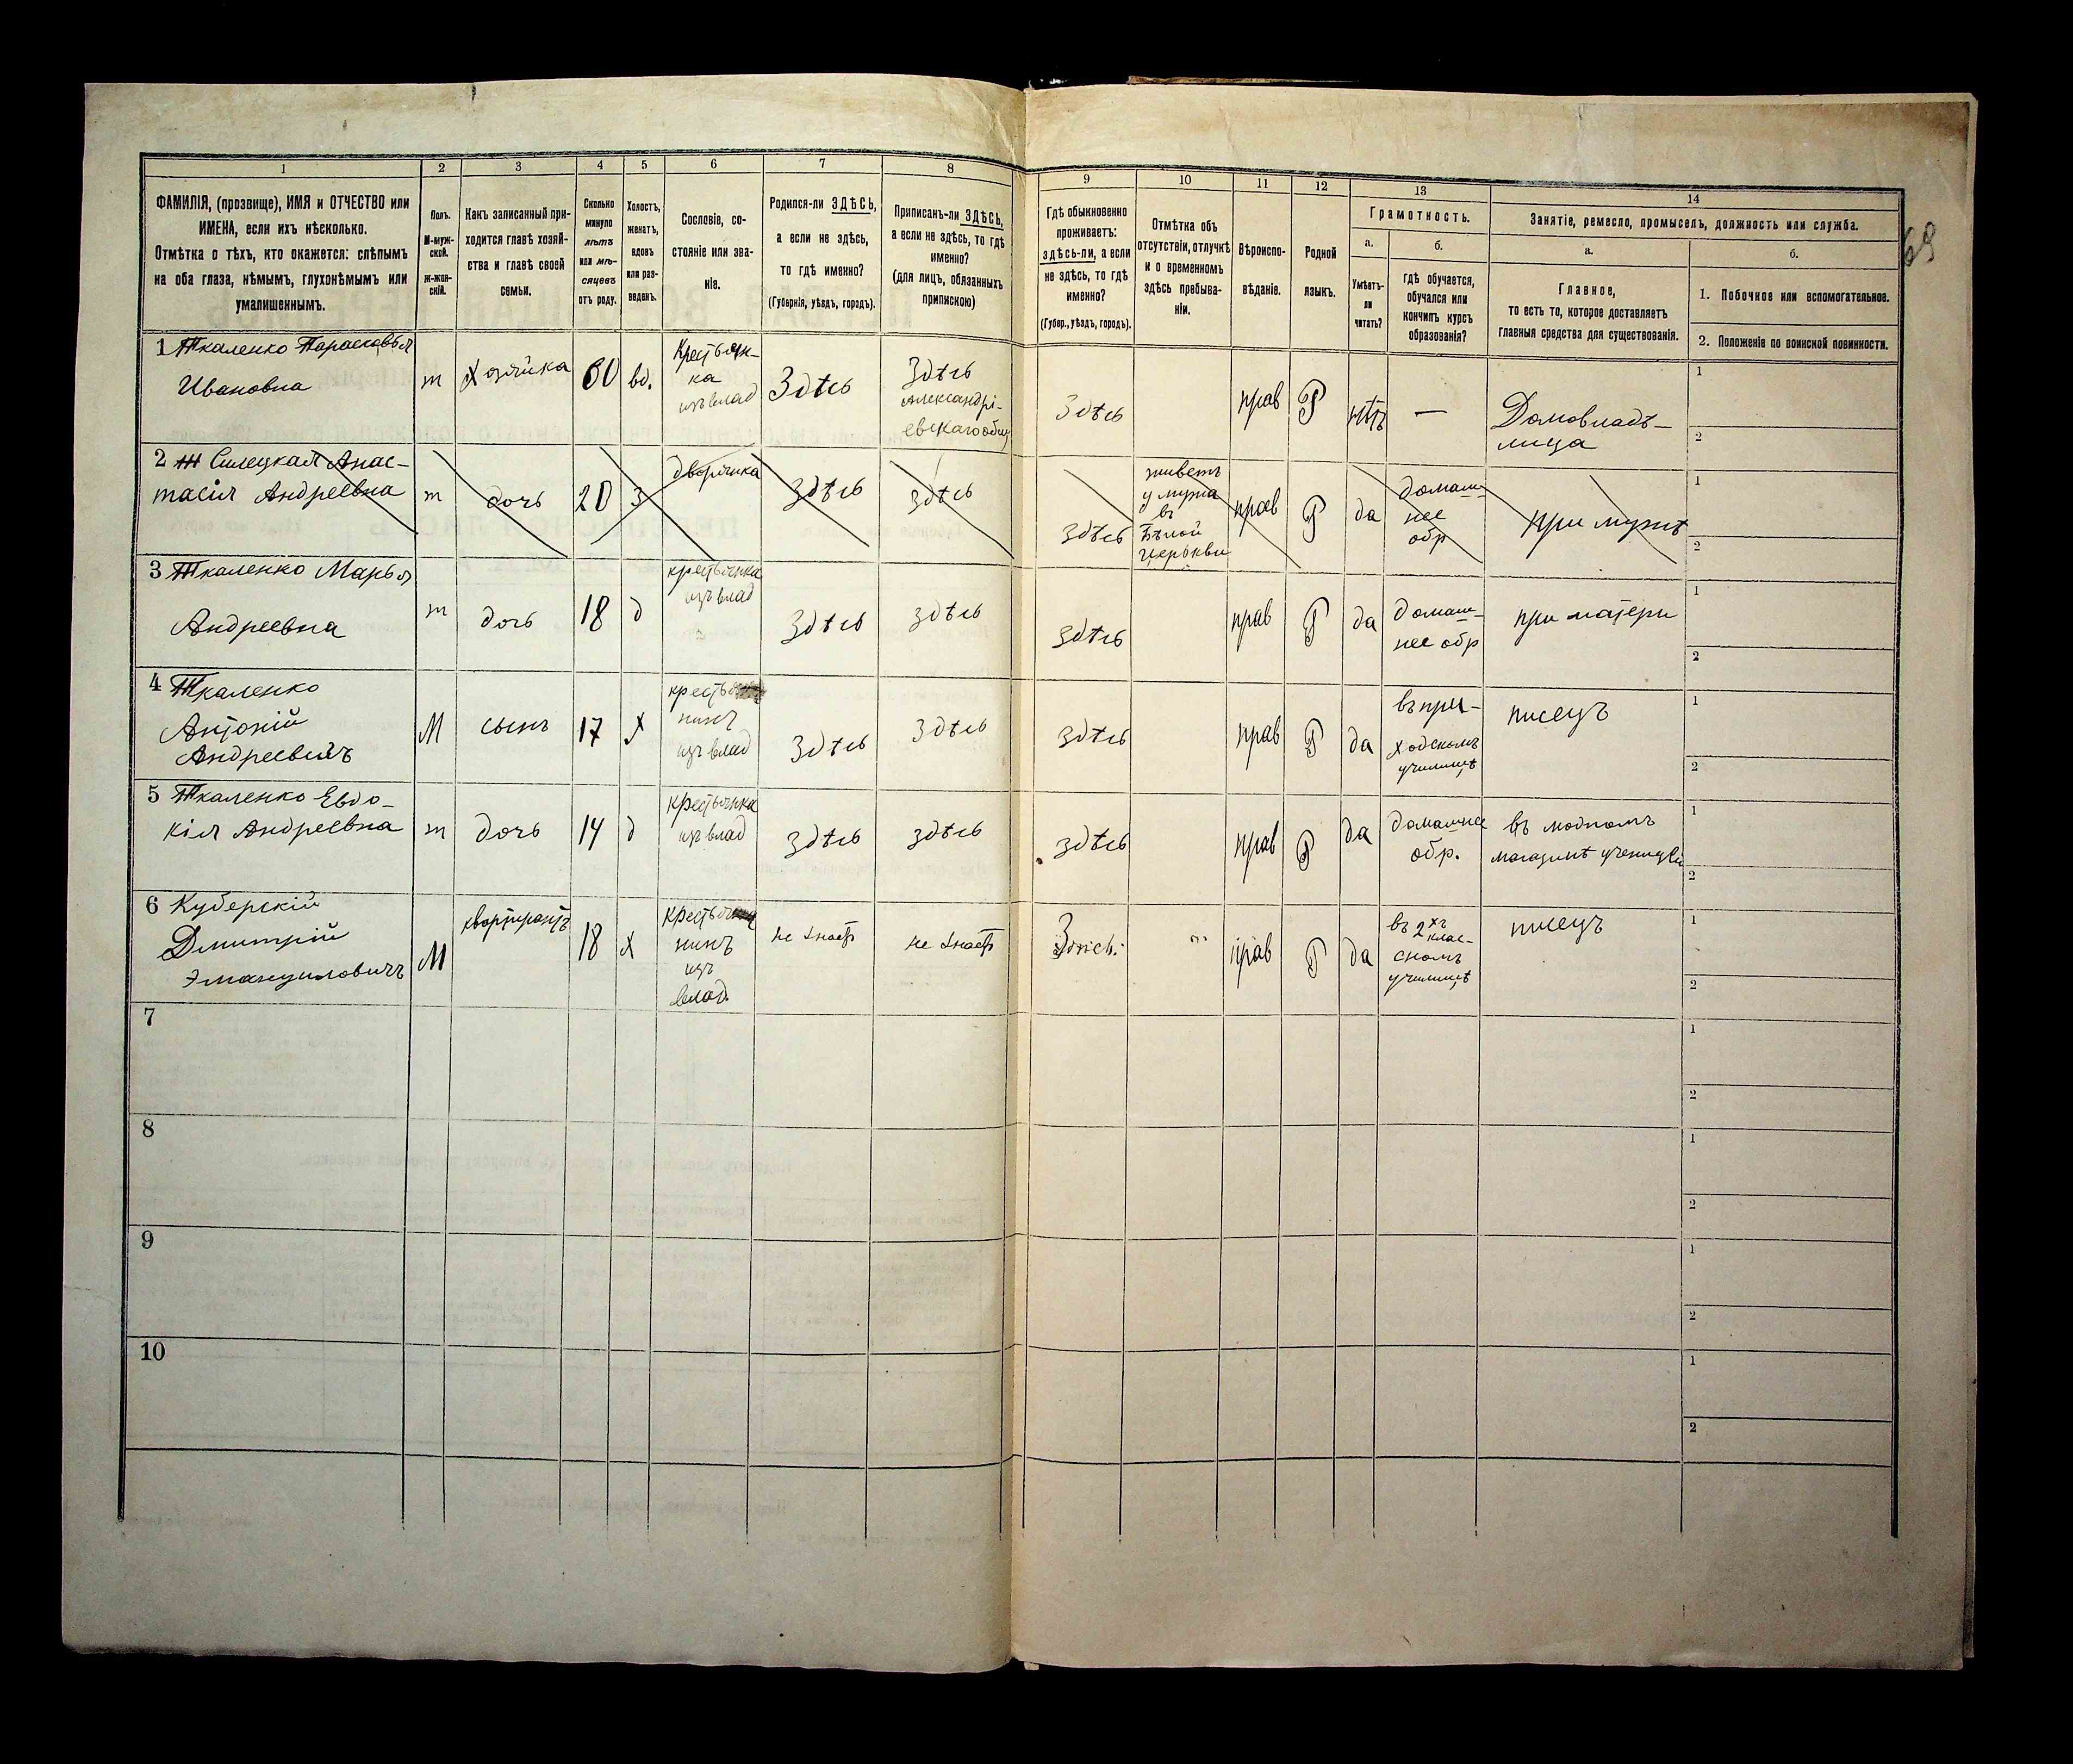 1
2
3
4
5
6
7
8
ФАМИЛІЯ, (прозвище), ИМЯ и ОТЧЕСТВО или
ИМЕНА, если ихъ нѣсколько.
Отмѣтка о тѣхъ, кто окажется: слѣпымъ
на оба глаза, нѣмымъ, глухонѣмымъ или
умалишеннымъ.
Полъ.
М-муж-
ской.
ж-жен-
скій.
Какъ записанный при-
ходится главѣ хозяй-
ства и главѣ своей
семьи.
Сколько
минуло
лѣтъ
или мѣ-
сяцевъ
отъ роду.
Холостъ,
женатъ,
вдовъ
или раз-
веденъ.
Сословіе, со-
стояніе или зва-
ніе.
Родился-ли ЗДѢСЬ,
а если не здѣсь,
то гдѣ именно?
(Губернія, уѣздъ, городъ).
Приписанъ-ли ЗДѢСЬ,
а если не здѣсь, то гдѣ
именно?
(для лицъ, обязанныхъ
припискою)
9
10
11
12
13
14
Гдѣ обыкновенно
проживаетъ:
здѣсь-ли, а если
не здѣсь, то гдѣ
именно?
(Губер., уѣздъ, городъ).
Отмѣтка объ
отсутствіи, отлучкѣ
и о временномъ
здѣсь пребыва-
ніи.
Вѣроиспо-
вѣданіе.
Родной
языкъ.
Грамотность.
а.
б.
Умѣетъ-
ли
читать?
Гдѣ обучается,
обучался или
кончилъ курсъ
образованія?
Занятіе, ремесло, промыселъ, должность или служба.
а.
б.
Главное,
то есть то, которое доставляетъ
главныя средства для существованія.
1. Побочное или вспомогательное.
2. Положеніе по воинской повинности.
69
1 Ткаленко Парасковья
Ивановна
ж
Хозяйка
60
вд.
Крестьян-
ка
изъ влад
Здѣсь
Здѣсь
Александрі-
евскаго общ
Здѣсь
прав
Р
нѣтъ
—
Домовладѣ-
лица
1
2
2 Силецкая Анас-
тасія Андреевна
ж
дочь
20
З
дворянка
здѣсь
здѣсь
здѣсь
живетъ
у мужа
въ
Бѣлой
Церькви
прав
Р
да
домаш-
нее
обр
при мужѣ
1
2
3 Ткаленко Марья
Андреевна
ж
дочь
18
д
крестьянка
изъ влад
здѣсь
здѣсь
здѣсь
прав
Р
да
домаш-
нее обр
при матери
1
2
4 Ткаленко
Антоній
Андреевичъ
М
сынъ
17
х
крестья
нинъ
изъ влад
здѣсь
здѣсь
здѣсь
прав
Р
да
въ при-
ходскомъ
училищѣ
писецъ
1
2
5 Ткаленко Евдо-
кія Андреевна
ж
дочь
14
д
крестьянка
изъ влад
здѣсь
здѣсь
здѣсь
прав
Р
да
домашнее
обр.
въ модномъ
магазинѣ ученица
1
2
6 Куберскій
Дмитрій
Эмануиловичъ
М
квартирантъ
18
х
крестья
нинъ
изъ
влад.
не знаетъ
не знаетъ
прав
Р
да
въ 2хъ
клас-
сномъ
училищѣ
писецъ
1
2
7
1
2
8
1
2
9
1
2
10
1
2